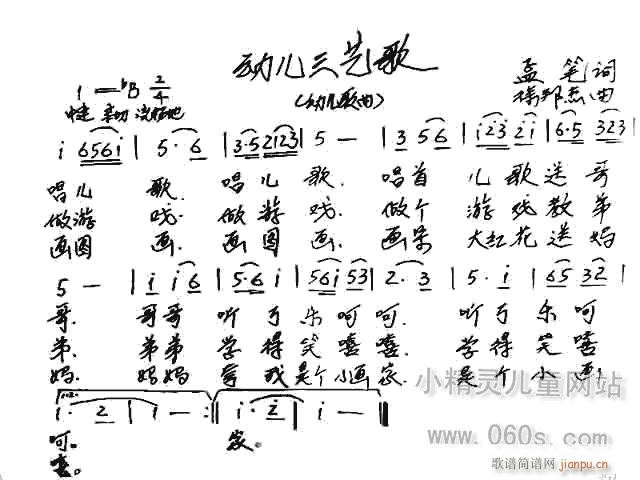 幼儿三艺歌
1=♭B 2/4
孟笔词
(幼儿歌曲)
中速 亲切
i 656i | 5· 6 | 3·5 2123 | 5 — | 3 56 | i23 2i | 6·5 323 |
唱儿 歌. 唱儿歌. 唱首 儿歌送哥
做游 戏. 做游戏. 做个 游戏教弟
画图 画. 画图画. 画朵 大红花送妈
5 — | i i6 | 5·6 i | 56i 53 | 2· 3 | 5· i | 65 32 |
哥. 哥哥 听了乐呵呵. 听了乐呵
弟. 弟弟 学得笑嘻嘻. 学得笑嘻
妈. 妈妈 夸我是个小画家. 是个小画
i· 2 | i — :‖ i· 2 | i — ‖
呵. 家.
小精灵儿童网站
www.060s.com
歌谱简谱网 jianpu.cn